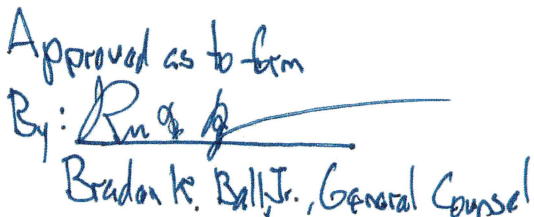 Approved as to form
By:
Bradon K. Ball, Jr., General Counsel